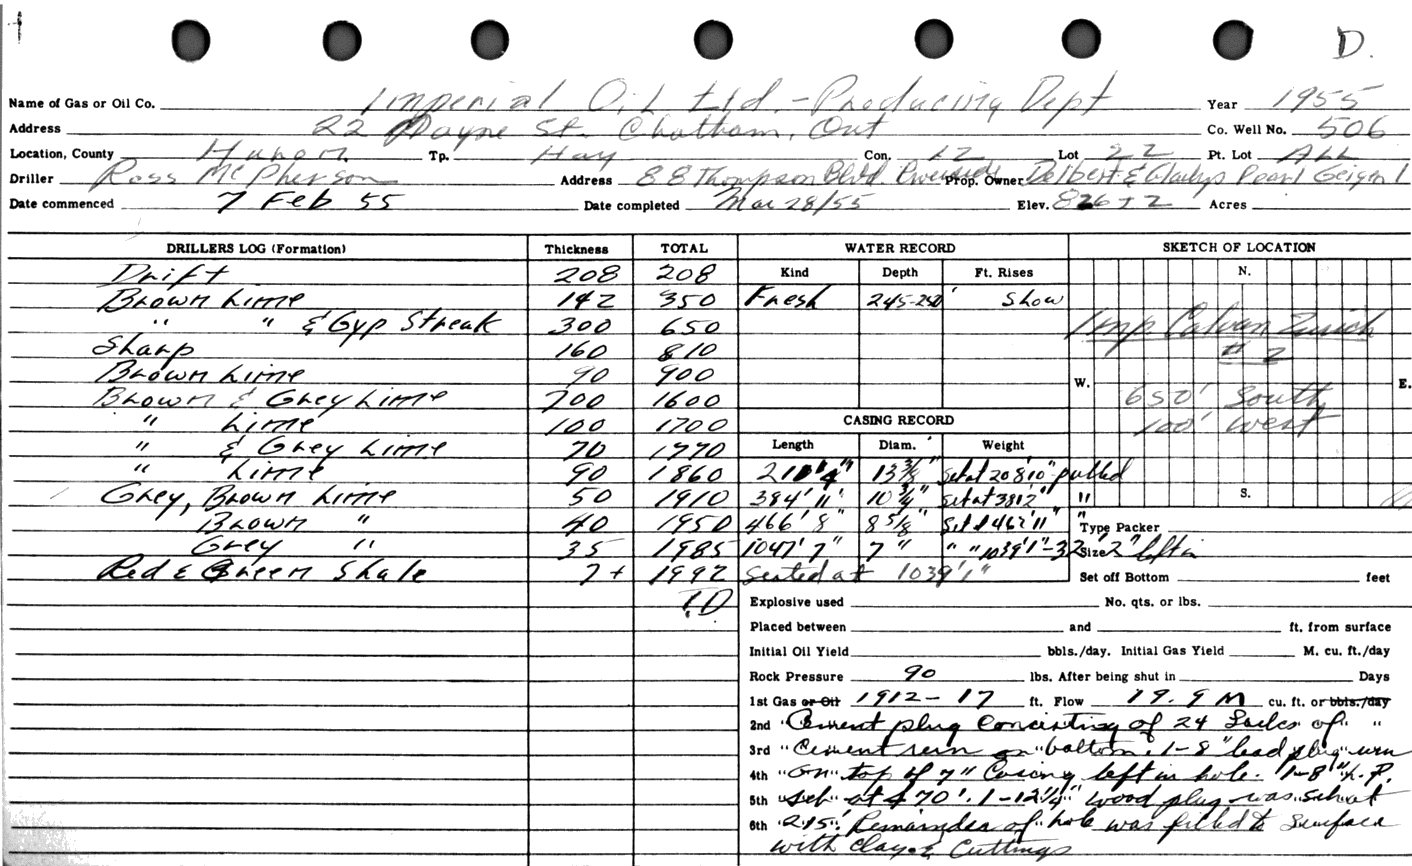 D.
Name of Gas or Oil Co. Imperial Oil Ltd. - Producing Dept Year 1955
Address 22 Wayne St. Chatham, Ont Co. Well No. 506
Location, County Huron Tp. Hay Con. 12 Lot 22 Pt. Lot ALL
Driller Ross McPherson Address 88 Thompson Blvd. Riverside Prop. Owner Delbert & Gladys Pearl Geiger
Date commenced 7 Feb 55 Date completed Mar 28/55 Elev. 826 ± 2 Acres
DRILLERS LOG (Formation) Thickness TOTAL WATER RECORD SKETCH OF LOCATION
Drift 208 208 Kind Depth Ft. Rises N.
Brown Lime 142 350 Fresh 245-250' Show
" " & Gyp Streak 300 650 Imp Calvan Zurich
Sharp 160 810 # 2
Brown Lime 90 900 W. E.
Brown & Grey Lime 700 1600 650' South
" Lime 100 1700 CASING RECORD 100' West
" & Grey Lime 70 1770 Length Diam. Weight
" Lime 90 1860 210' 4" 13 3/8" set at 208'10" pulled
Grey, Brown Lime 50 1910 384' 11" 10 3/4" set at 381'2" " S.
Brown " 40 1950 466' 8" 8 5/8" set at 462'11" " Type Packer
Grey " 35 1985 1047' 7" 7" " " 1039'1" - 32' 2" left in Size
Red & Green Shale 7+ 1992 Seated at 1039' 1" Set off Bottom feet
T.D Explosive used No. qts. or lbs.
Placed between and ft. from surface
Initial Oil Yield bbls./day. Initial Gas Yield M. cu. ft./day
Rock Pressure 90 lbs. After being shut in Days
1st Gas or Oil 1912 - 17 ft. Flow 19.9 M cu. ft. or bbls./day
2nd " Cement plug consisting of 24 Sacks of " "
3rd " Cement run on " bottom. 1-8" lead plug run
4th " on " top of 7" Casing left in hole. 1-8" L.P.
5th " set " at 470'. 1-12 1/4" wood plug was set at
6th " 215'. Remainder of " hole was filled to Surface
with Clay & Cuttings